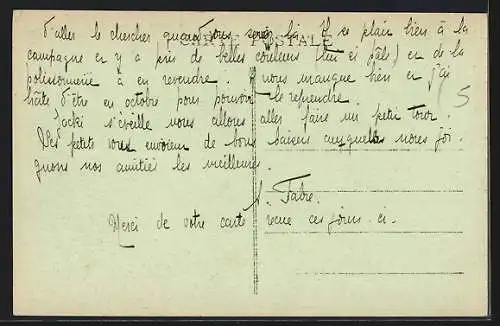 d'aller le chercher quand vous serez là. il se plaît bien à la
CARTE POSTALE
campagne et y a pris de belles couleurs (lui si pâle) et de la
polissonnerie à en revendre. il nous manque bien et j'ai
hâte d'être en octobre pour pouvoir le reprendre.
5
Jacki s'éveille nous allons aller faire un petit tour.
Les petits vous envoient de bons baisers auxquels nous joi
gnons nos amitiés les meilleures.
Fabre.
Merci de votre carte reçue ces jours-ci.